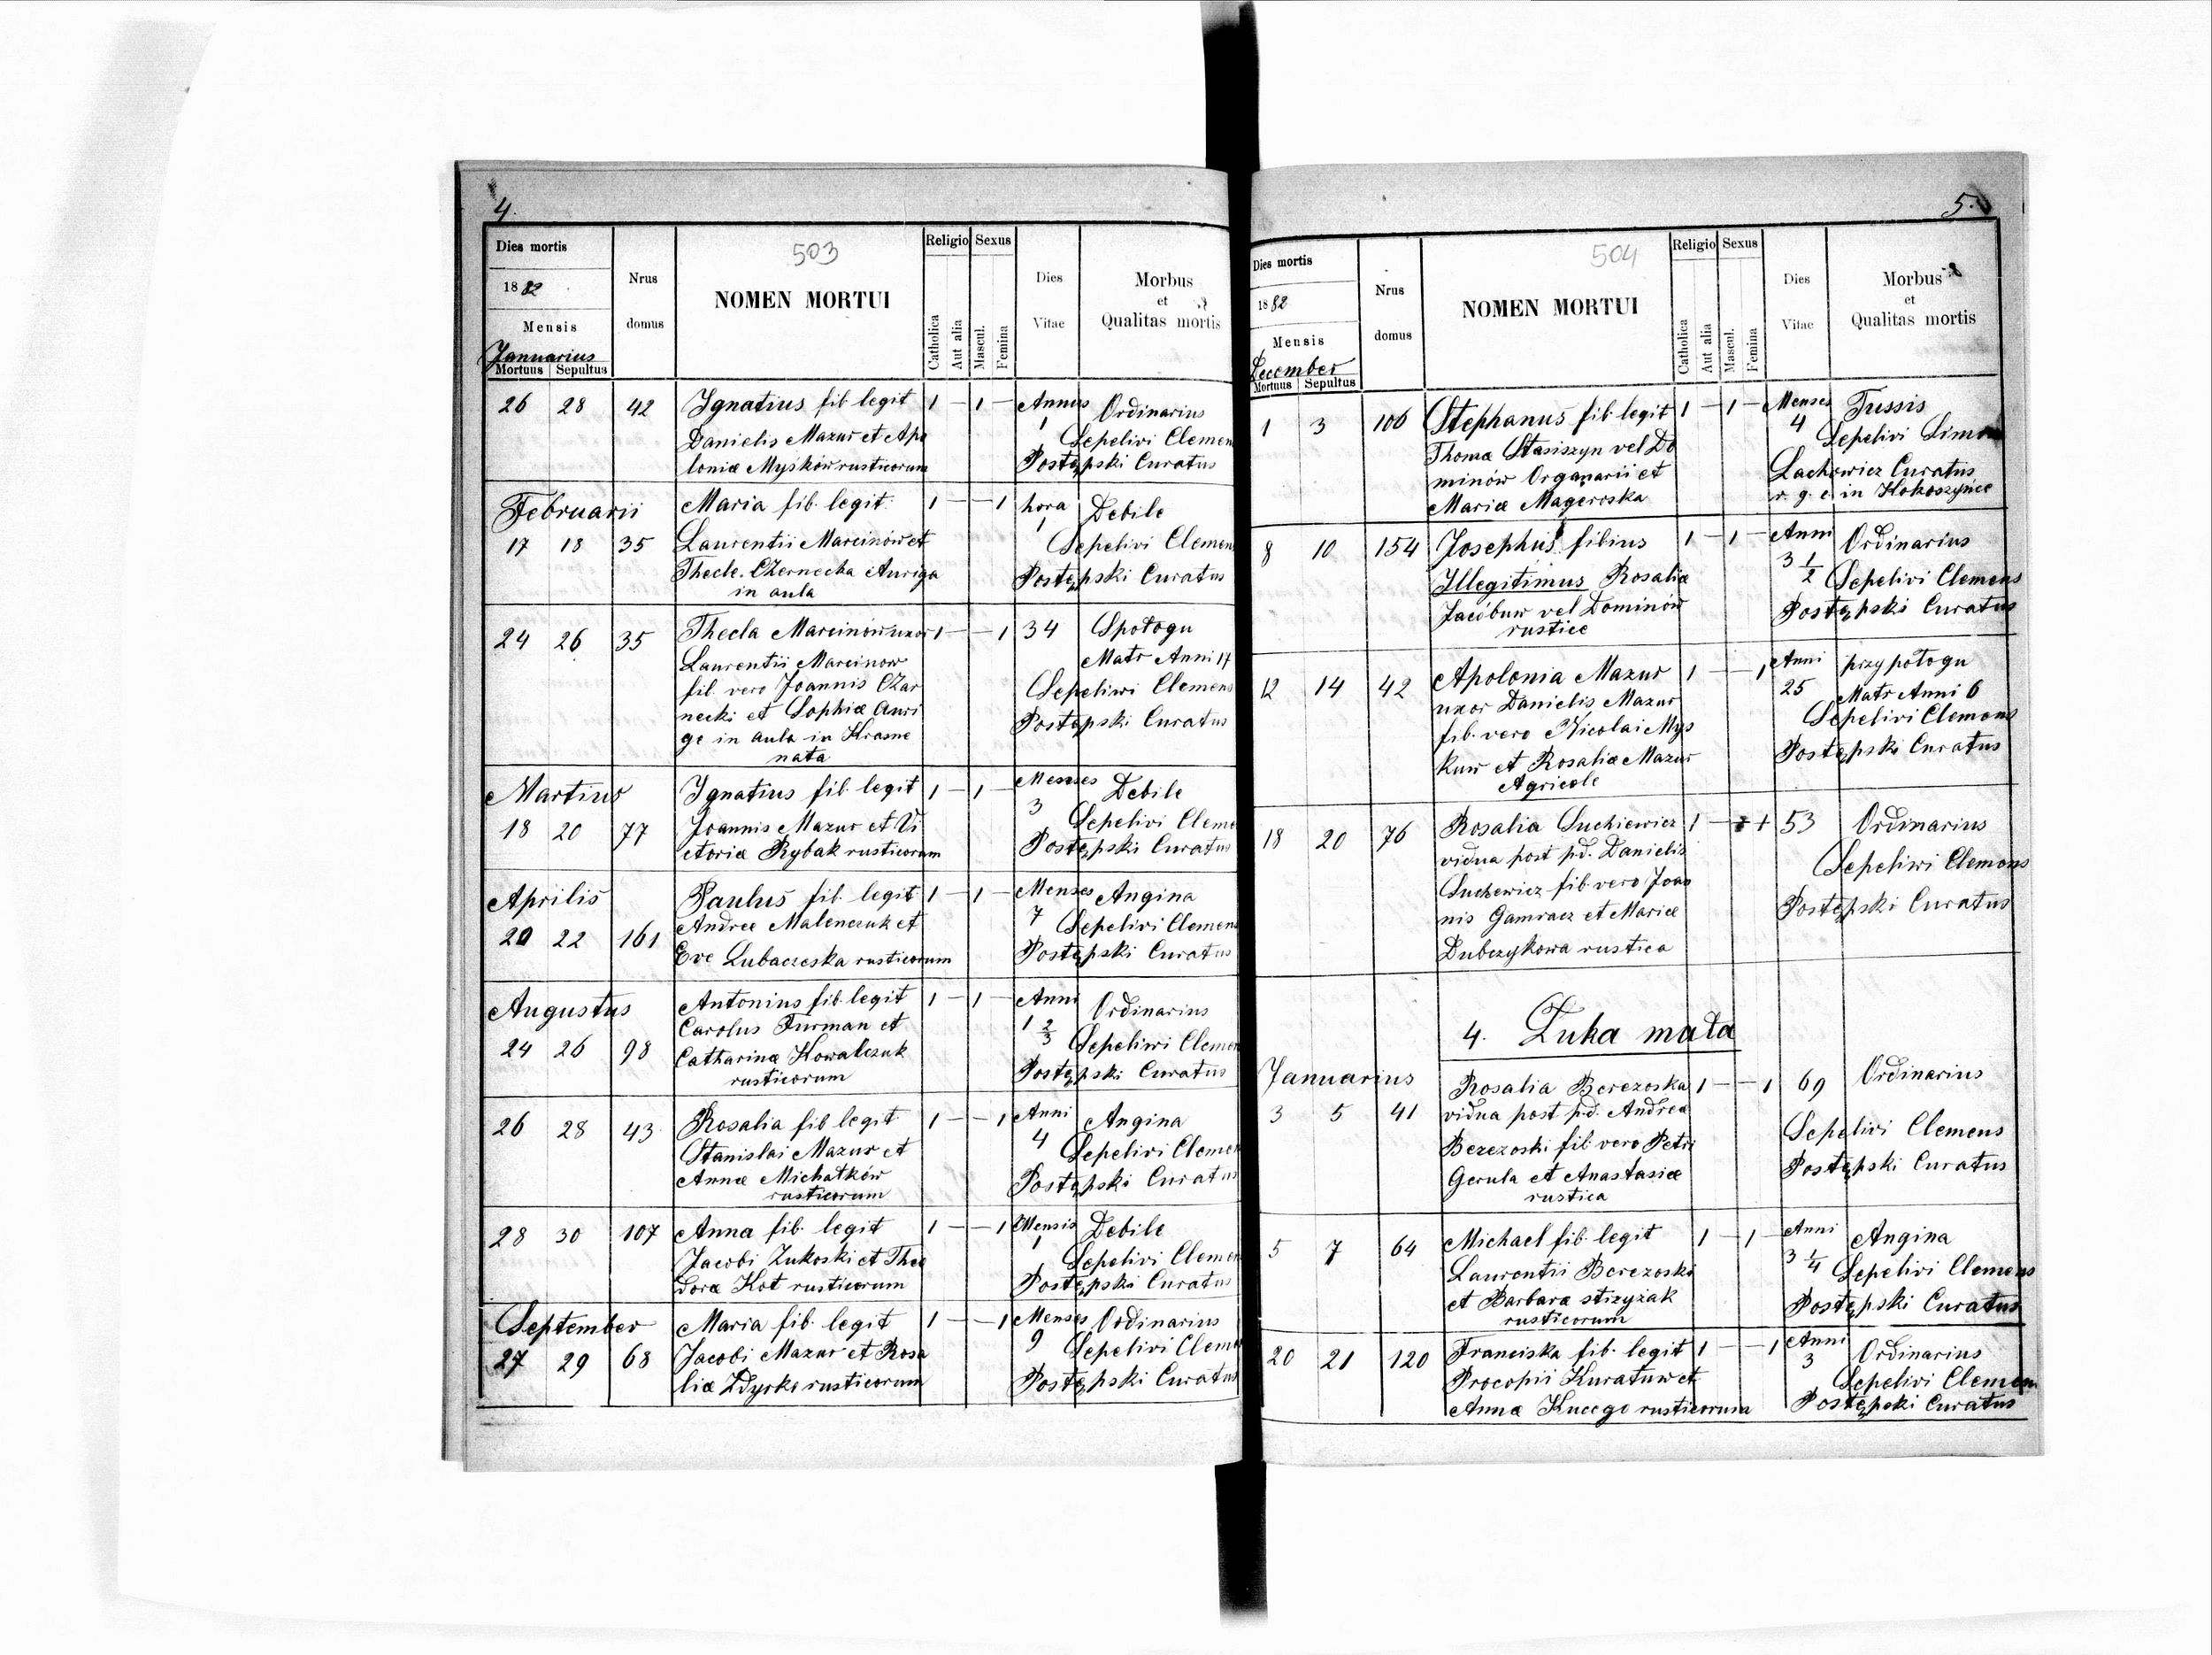 4.
Dies mortis
1882
Mensis
Januarius
Mortuus Sepultus
Nrus domus
503
NOMEN MORTUI
Religio
Catholica
Aut alia
Sexus
Mascul.
Femina
Dies Vitae
Morbus et Qualitas mortis
26 28 42 Ignatius fil. legit 1 – 1 – Annus Ordinarius
Danielis Mazur et Apo 1 Sepelivi Clemen
loniæ Myśków rusticorum Postępski Curatus
Februarii Maria fil. legit. 1 – – 1 hora Debile
17 18 35 Laurentii Marcinów et 1 Sepelivi Clemen
Thecle Czernecka Auriga Postępski Curatus
in aula
24 26 35 Thecla Marcinów uxor 1 – – 1 34 Społogu
Laurentii Marcinow Matr Anni 17
fil. vero Joannis Czar Sepeliwi Clemens
necki et Sophiæ Auri Postępski Curatus
ge in aula in Krasne
nata
Martius Ignatius fil. legit 1 – 1 – Menses Debile
18 20 77 Joannis Mazur et Vi 3 Sepelivi Cleme
ctoriæ Rybak rusticorum Postępski Curatus
Aprilis Paulus fil. legit 1 – 1 – Menses Angina
20 22 161 Andreæ Malenczuk et 7 Sepelivi Clemen
Eve Lubaczeska rusticorum Postępski Curatus
Augustus Antonius fil. legit 1 – 1 – Anni Ordinarius
24 26 98 Carolus Furman et 1 2/3 Sepeliwi Clemen
Catharinæ Kowalczuk Postępski Curatus
rusticorum
26 28 43 Rosalia fil. legit 1 – – 1 Anni Angina
Stanislai Mazur et 4 Sepelivi Clemen
Annæ Michałków Postępski Curatus
rusticorum
28 30 107 Anna fil. legit 1 – – 1 Mensis Debile
Jacobi Zukoski et Theo 1 Sepelivi Clemen
doræ Kot rusticorum Postępski Curatus
September Maria fil. legit 1 – – 1 Menses Ordinarius
27 29 68 Jacobi Mazur et Rosa 9 Sepelivi Cleme
liæ Zdyrke rusticorum Postępski Curatus
5.
Dies mortis
1882
Mensis
December
Mortuus Sepultus
Nrus domus
504
NOMEN MORTUI
Religio
Catholica
Aut alia
Sexus
Mascul.
Femina
Dies Vitae
Morbus et Qualitas mortis
1 3 106 Stephanus fil. legit 1 – 1 – Menses Tussis
Thomæ Stasiszyn vel Do 4 Sepelivi Simon
minów Organarii et Lachowicz Curatus
Mariæ Mageroska r. g. c. in Kokoszyńce
8 10 154 Josephus filius 1 – 1 – Anni Ordinarius
Illegitimus Rosaliæ 3 1/2 Sepelivi Clemens
Jacóbuw vel Dominów Postępski Curatus
rustice
12 14 42 Apolonia Mazur 1 – – 1 Anni przy połogu
uxor Danielis Mazur 25 Matr Anni 6
fil. vero Nicolai Mys Sepelivi Clemens
kuw et Rosaliæ Mazur Postępski Curatus
Agricole
18 20 76 Rosalia Suchiewicz 1 – 1 53 Ordinarius
vidua post pd. Danielis Sepeliwi Clemens
Suchewicz fil. vero Joan Postępski Curatus
nis Gamracz et Mariæ
Dubczykowa rustica
4. Łuka mała
Januarius Rosalia Berezoska 1 – – 1 69 Ordinarius
3 5 41 vidua post pd. Andrea Sepelivi Clemens
Berezoski fil. vero Petri Postępski Curatus
Gerula et Anastasiæ
rustica
5 7 64 Michael fil. legit 1 – 1 – Anni Angina
Laurentii Berezoski 3 1/4 Sepelivi Clemens
et Barbara strzyżak Postępski Curatus
rusticorum
20 21 120 Franciska fil. legit 1 – – 1 Anni Ordinarius
Procopii Kuratuw et 3 Sepelivi Clemen
Annæ Kucego rusticorum Postępski Curatus